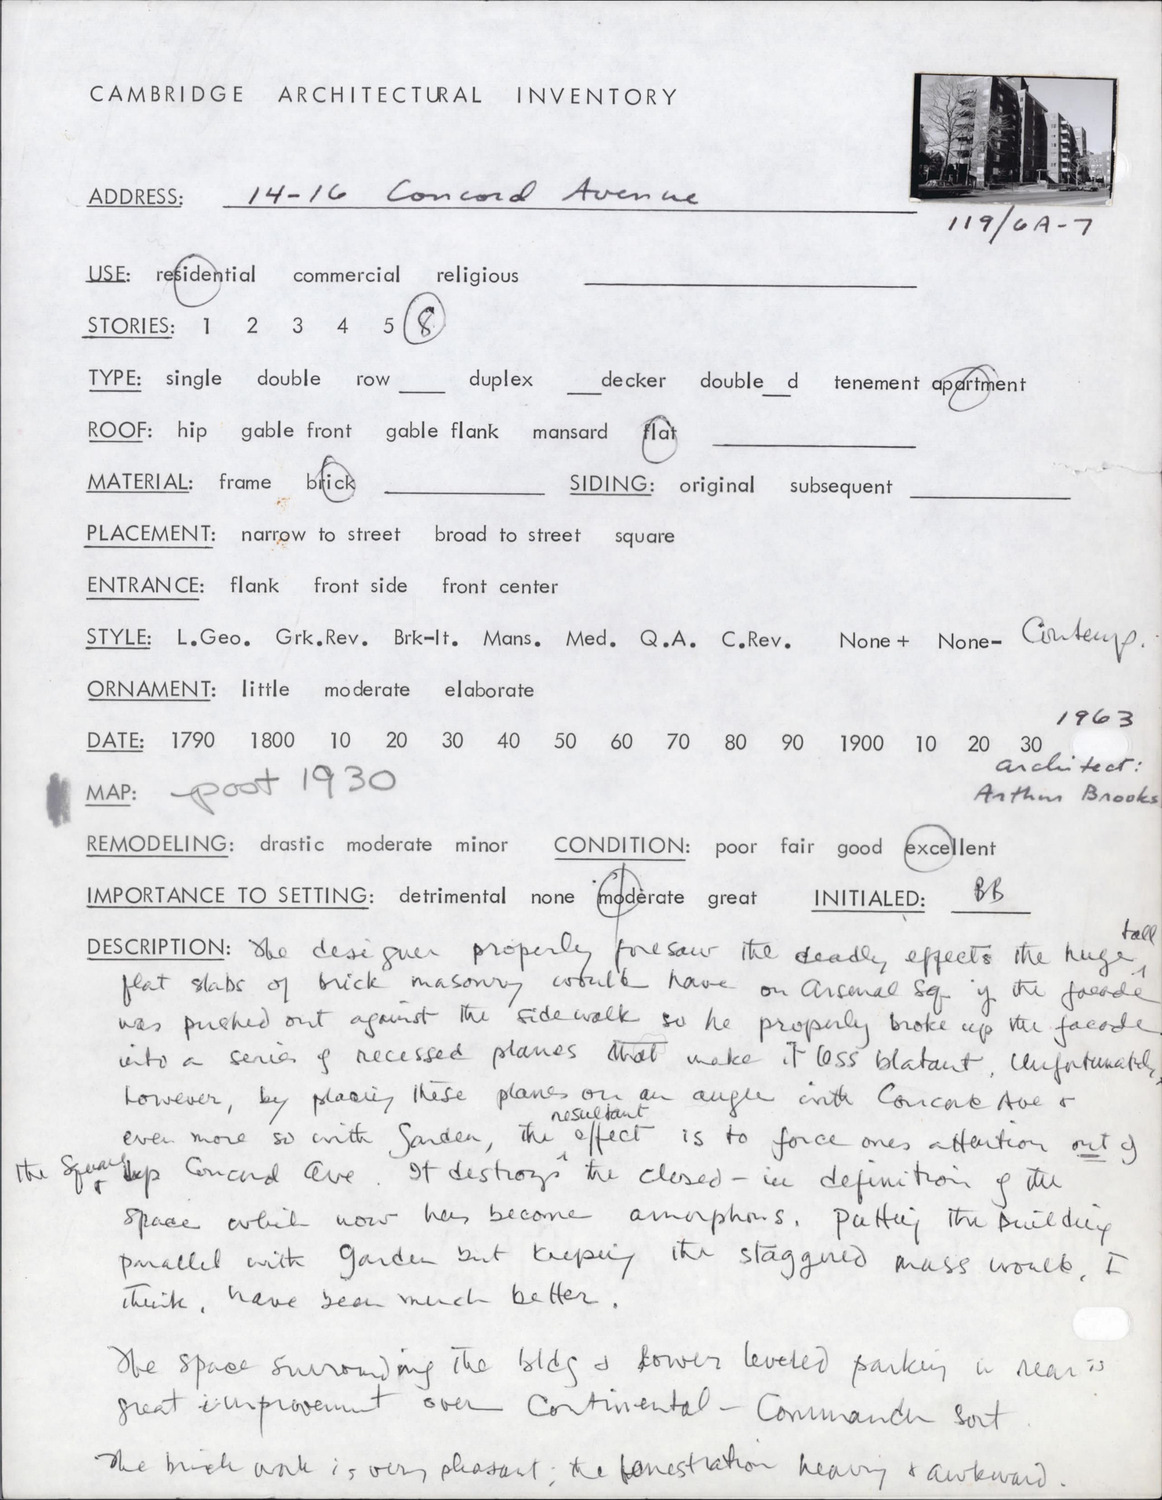 CAMBRIDGE ARCHITECTURAL INVENTORY
ADDRESS: 14-16 Concord Avenue
119/6A-7
USE: residential commercial religious
STORIES: 1 2 3 4 5 8
TYPE: single double row ___ duplex ___decker double__d tenement apartment
ROOF: hip gable front gable flank mansard flat
MATERIAL: frame brick SIDING: original subsequent
PLACEMENT: narrow to street broad to street square
ENTRANCE: flank front side front center
STYLE: L.Geo. Grk.Rev. Brk-It. Mans. Med. Q.A. C.Rev. None + None- Contemp.
ORNAMENT: little moderate elaborate
1963
DATE: 1790 1800 10 20 30 40 50 60 70 80 90 1900 10 20 30
architect:
MAP: post 1930 Arthur Brooks
REMODELING: drastic moderate minor CONDITION: poor fair good excellent
IMPORTANCE TO SETTING: detrimental none moderate great INITIALED: BB
DESCRIPTION: The designer properly foresaw the deadly effects the huge tall
flat slabs of brick masonry would have on Arsenal Sq if the facade
was pushed out against the sidewalk so he properly broke up the facade
into a series of recessed planes that make it less blatant. Unfortunately,
however, by placing these planes on an angle with Concord Ave &
even more so with Garden, the resultant effect is to force ones attention out of
the Square & up Concord Ave. It destroys the closed-in definition of the
space which now has become amorphous. Putting the building
parallel with Garden but keeping the staggered mass would, I
think, have been much better.
The space surrounding the bldg & lower leveled parking in rear is
great improvement over Continental - Commander sort.
The brick work is very pleasant; the fenestration heavy & awkward.